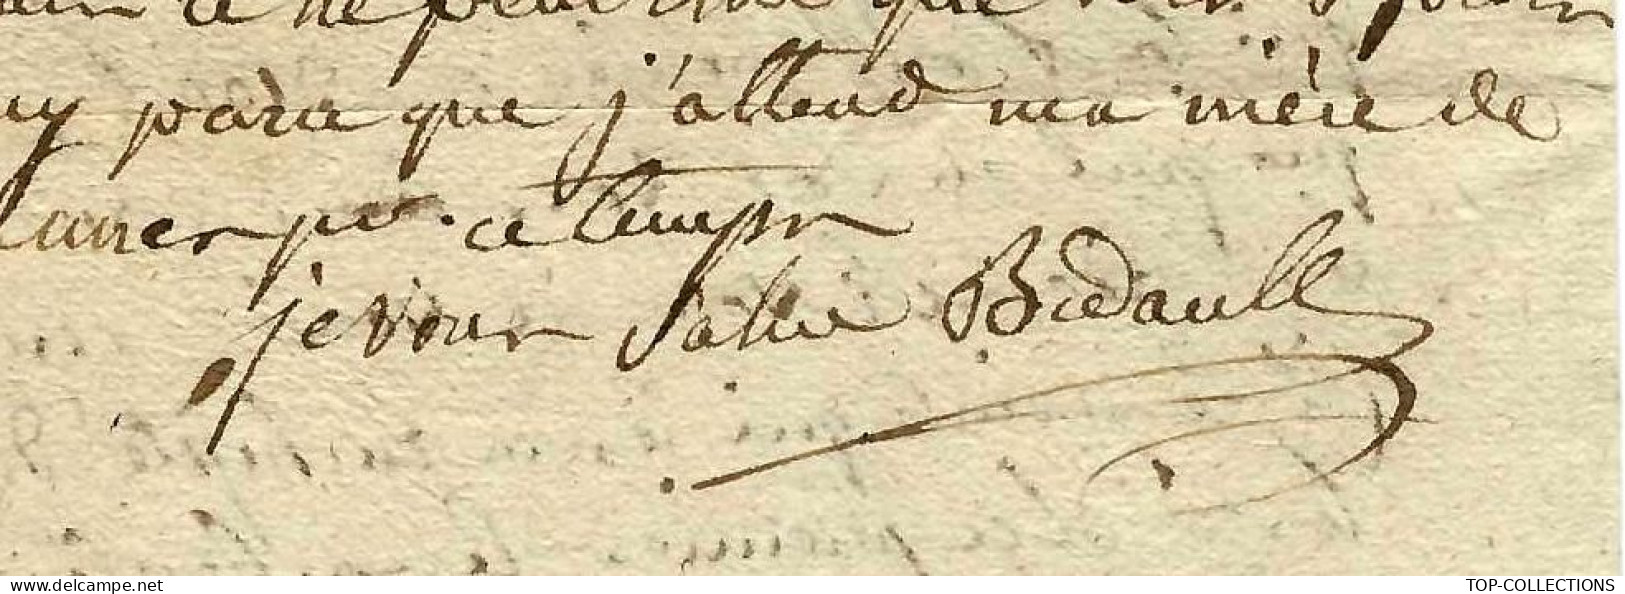 a ne peut être que
parce que j'attend ma mère de
pr. ce temps
je vous salue Bidault
www.delcampe.net
TOP-COLLECTIONS